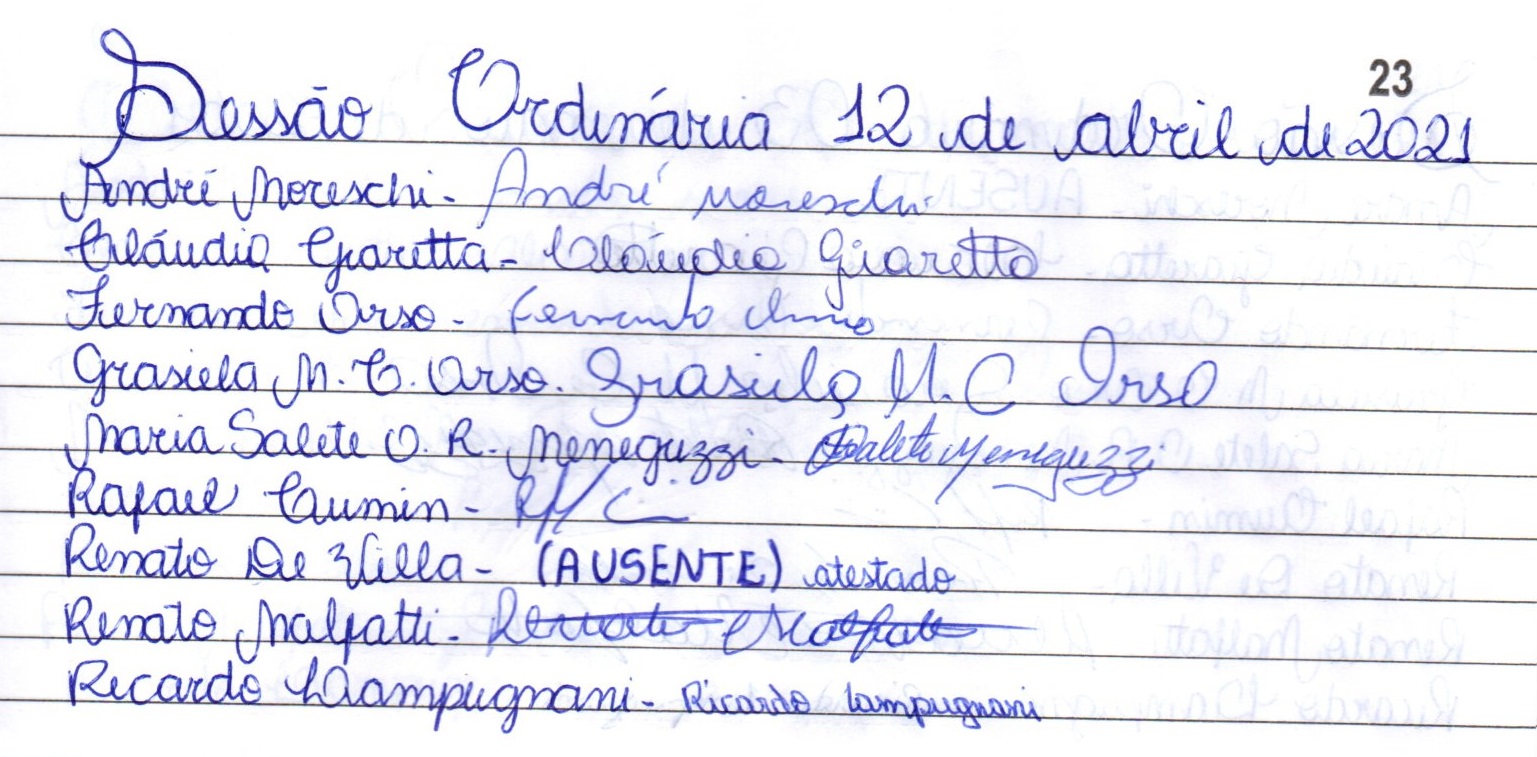 23
Sessão Ordinária 12 de abril de 2021
André Moreschi - André Moreschi
Cláudia Giaretta - Cláudia Giaretta
Fernando Orso - Fernando Orso
Grasiela M. C. Orso. Grasiela M. C Orso
Maria Salete O. R. Meneguzzi - Salete Meneguzzi
Rafael Cumin -
Renato De Villa - (AUSENTE) atestado
Renato Malfatti - Renato Malfatti
Ricardo Lampugnani - Ricardo Lampugnani